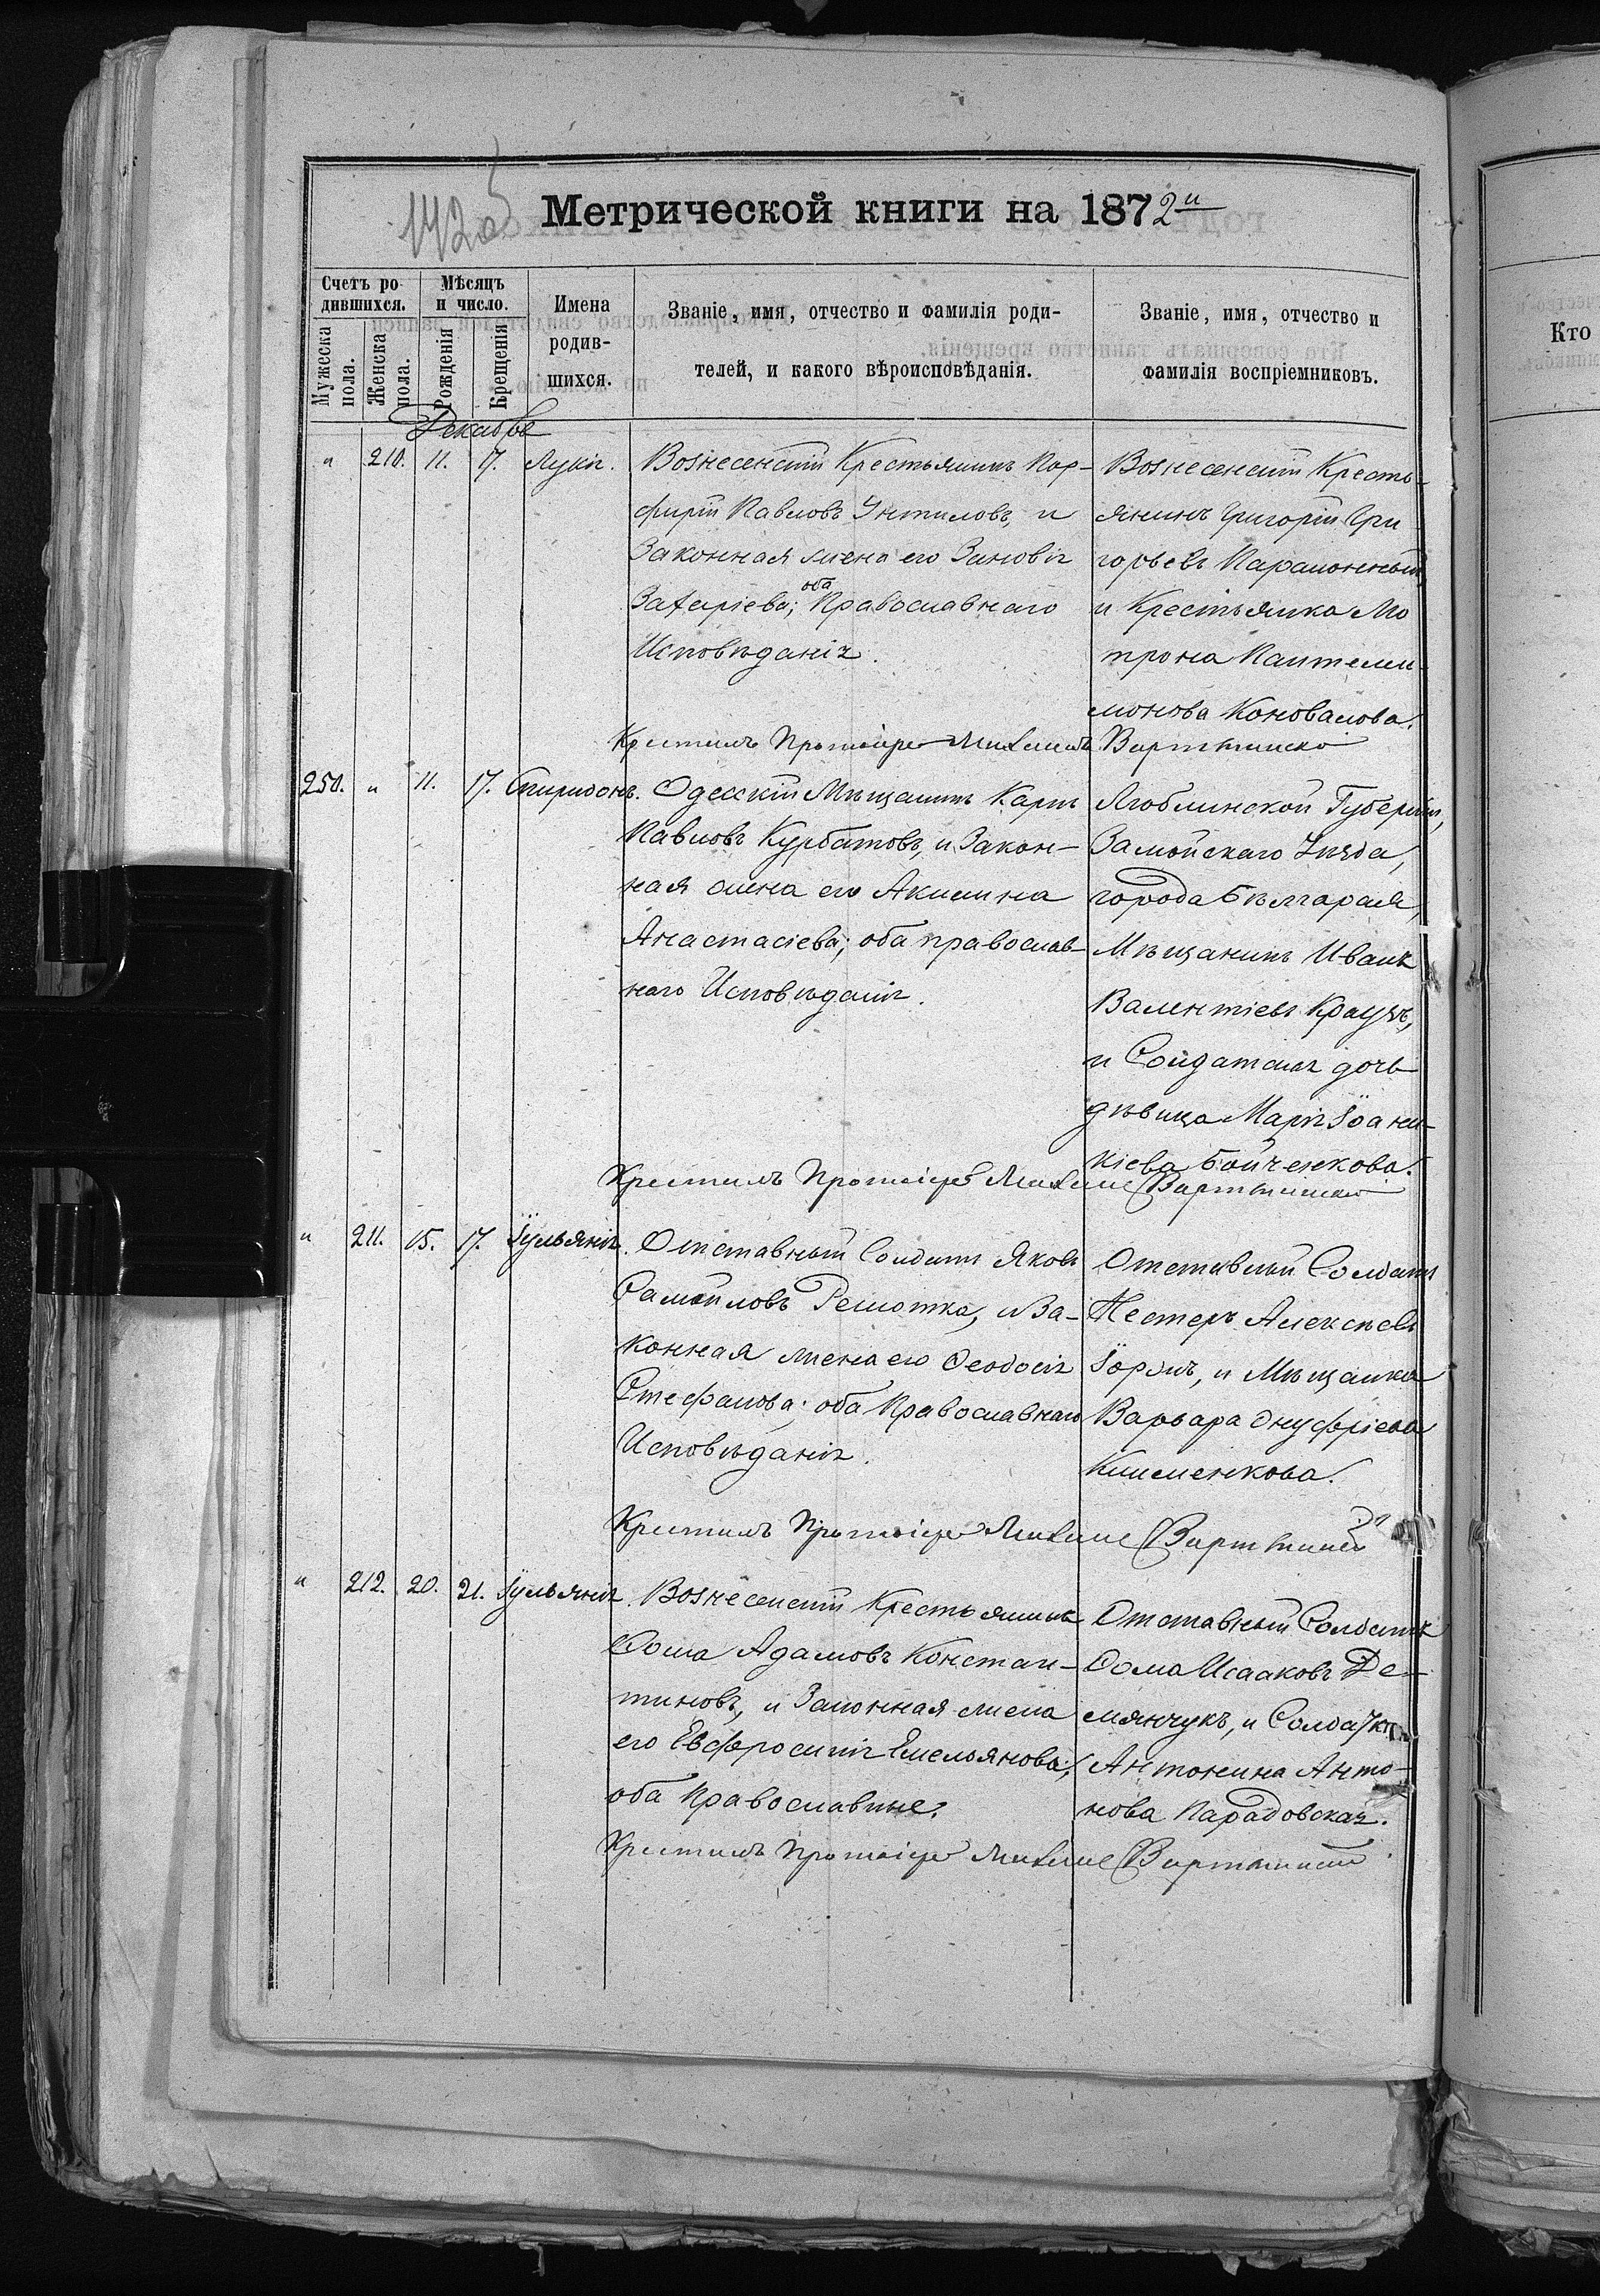 Метрической книги на 1872й
Счетъ ро-
дившихся.
Мужеска
пола.
Женска
пола.
Мѣсяцъ
и число.
Рожденія
Крещенія
Имена
родив-
шихся.
Званіе, имя, отчество и фамилія роди-
телей, и какого вѣроисповѣданія.
Званіе, имя, отчество и
фамилія воспріемниковъ.
Кто
Декабрь
" 210. 11. 17. Лукія.
Вознесенскій Крестьянинъ Пор-
фирій Павловъ Унтиловъ, и
Законная жена его Зиновія
Захаріева; оба Православнаго
Исповѣданія.
Вознесенскій Кресть-
янинъ Григорій Гри
горьевъ Парамонный,
и Крестьянка Мо
трона Пантелеи-
монова Коновалова.
Крестилъ Протоіерей Михаилъ
250. " 11. 17. Спиридонъ.
Одесскій Мѣщанинъ Карпъ
Павловъ Курбатовъ, и Закон-
ная жена его Акилина
Анастасіева; оба православ-
наго Исповѣданія.
Люблинской Губерніи,
Замойскаго Уѣзда,
города Бѣлгорая,
Мѣщанинъ Иванъ
Валентіевъ Краузъ,
и Солдатская дочь
дѣвица Марія Іоани-
кіева Бойченкова.
Крестилъ Протоіерей Михаилъ
" 211. 15. 17. Іульянія.
Отставный Солдатъ Яковъ
Самойловъ Решотка, и За-
конная жена его Ѳеодосія
Стефанова; оба Православнаго
Исповѣданія.
Отставный Солдатъ
Нестеръ Алексѣевъ
и Мѣщанка
Варвара Онуфріева
Клименкова.
Крестилъ Протоіерей Михаилъ
" 212. 20. 21. Іульянія.
Вознесенскій Крестьянинъ
Ѳома Адамовъ Констан-
тиновъ, и Законная жена
его Евфросинія Емельянова;
оба Православные.
Отставный Солдатъ
Ѳома Исааковъ Де-
мянчукъ, и Солдатка
Антонина Анто-
нова Парадовская.
Крестилъ Протоіерей Михаилъ